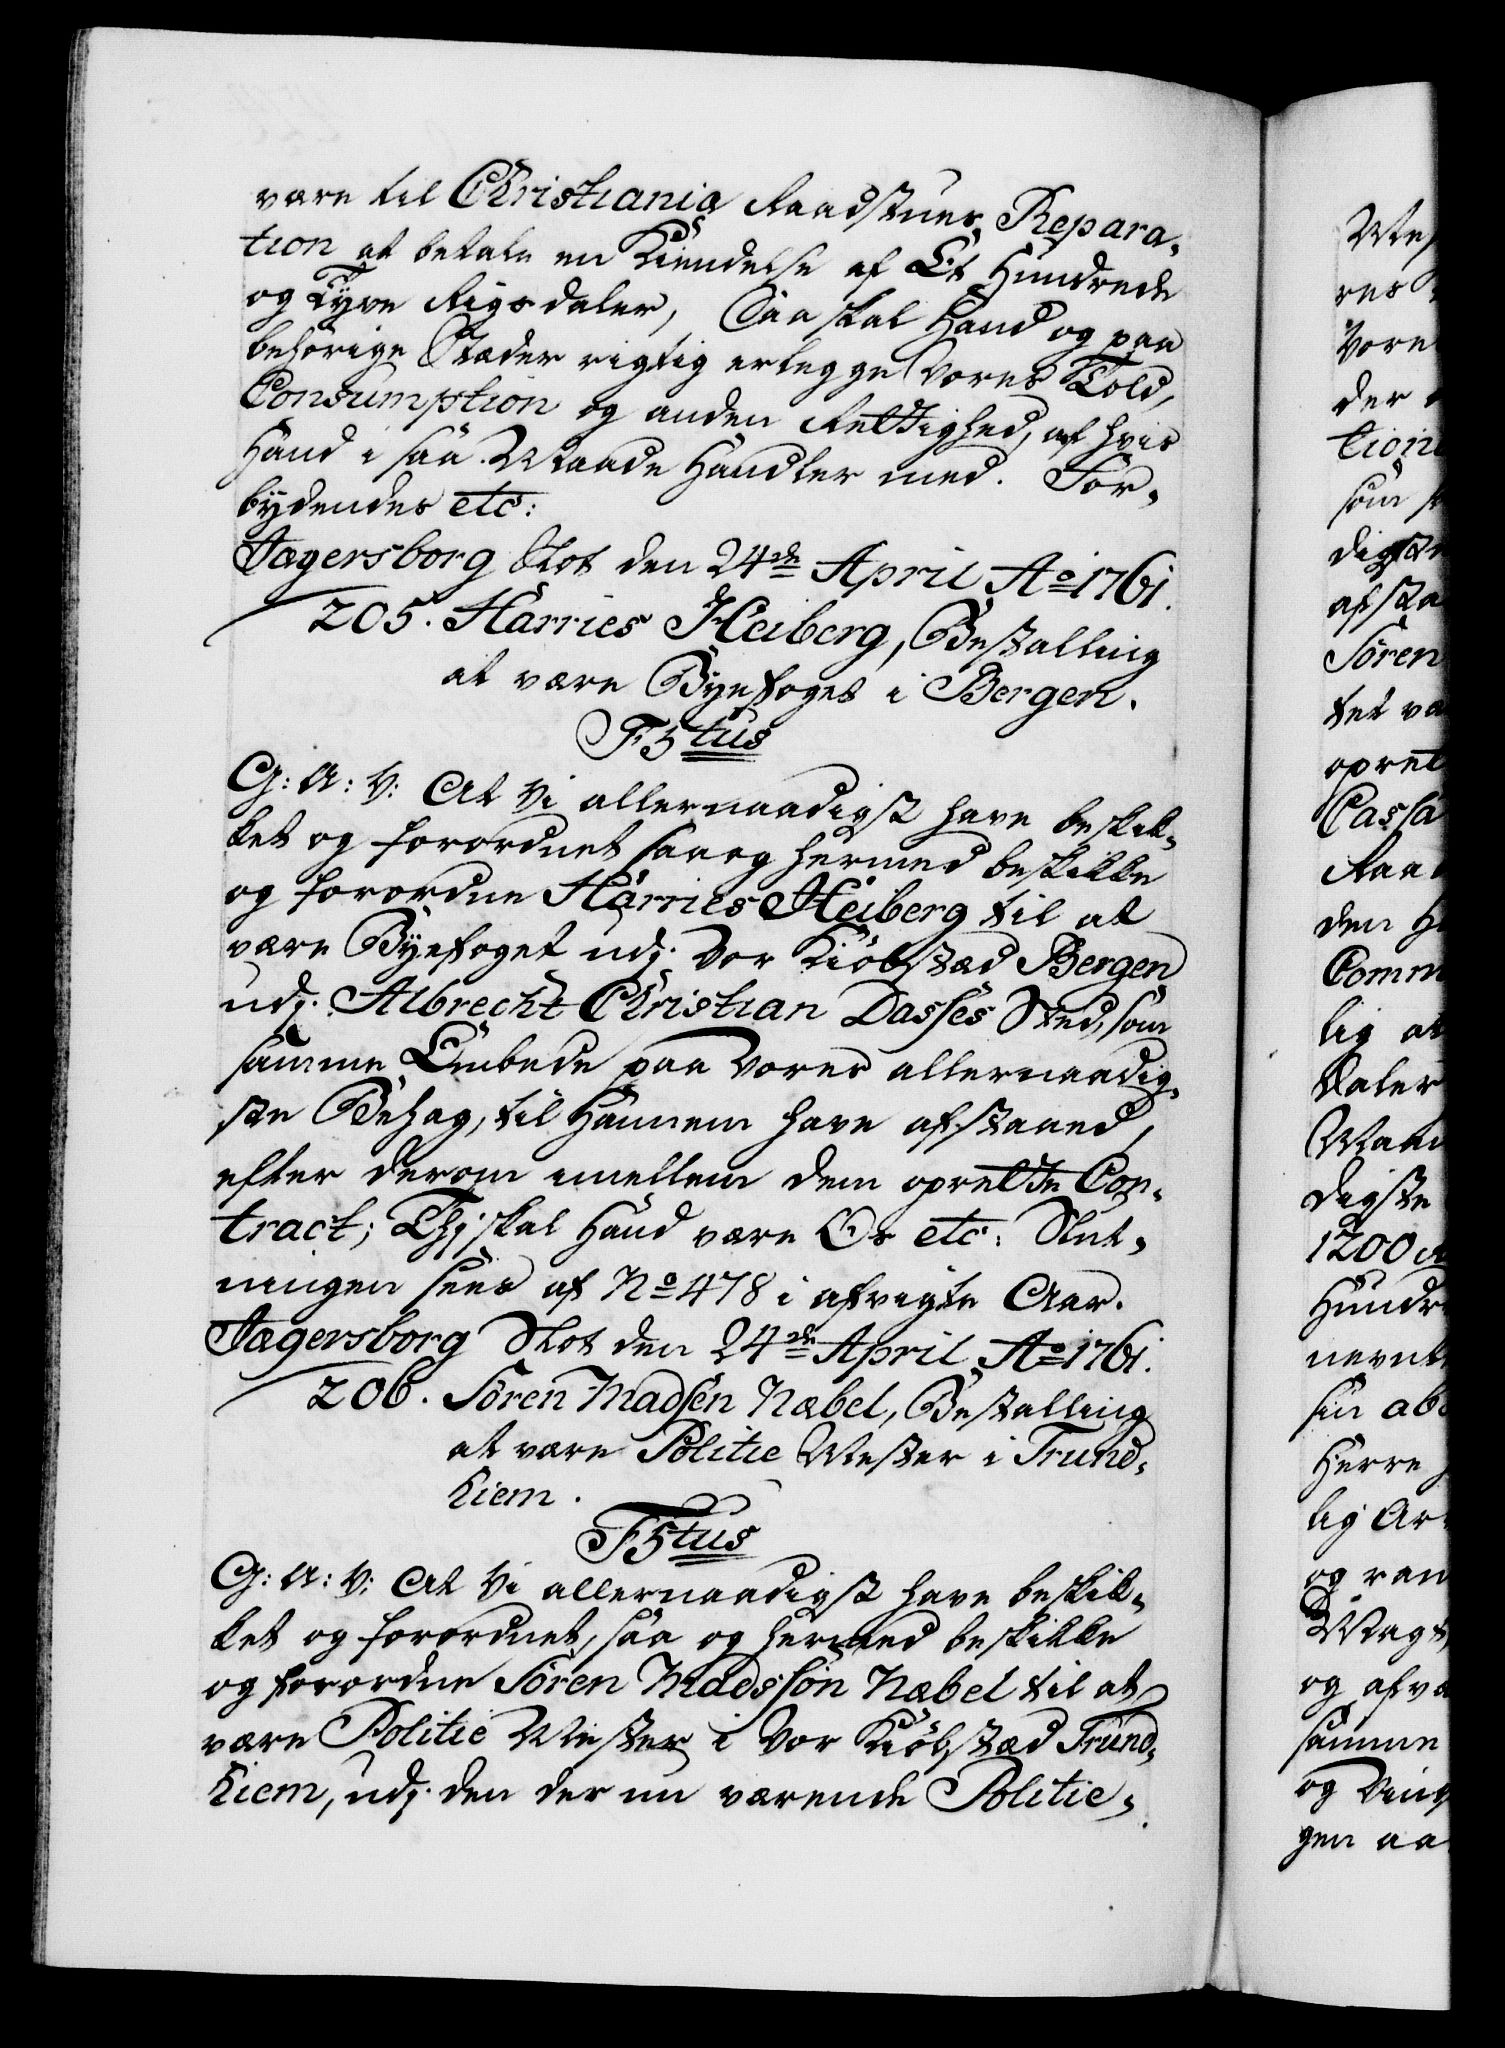 være til Christiania Raadstues Repara-
tion at betale en Kiendelse af Et Hundrede
og Tyve Rigsdaler, Saa skal Hand og paa
behörige Stæder rigtig erlegge Vores Told,
Consumption og anden Rettighed, af hvis
Hand i saa Maade Handler med. For-
bydendes etc:
Jægersborg Slot den 24de April Ao 1761.
205. Harries Heiberg, Bestalling
at være Byefoget i Bergen.
F5tus
G: A: V: At Vi allernaadigst have beskik-
ket og forordnet saa og hermed beskikke
og forordne Harries Heiberg til at
være Byefoget udj Vor Kiöbstæd Bergen
udj Albrecht Christian Dasses Sted, som
samme Embede paa Vores allernaadig-
ste Behag, til Hannem have afstaaed,
efter derom imellem dem oprette Con-
tract; Thj skal Hand være Os etc: Slut-
ningen sees af No 478 i afvigte Aar.
Jægersborg Slot den 24de April Ao 1761.
206. Sören Madsen Næbel, Bestalling
at være Politie Mester i Trund-
hiem.
F5tus
G: A: V: At Vi allernaadigst have beskik-
ket og forordnet, saa og hermed beskikke
og forordne Sören Madssön Næbel til at
være Politie Mester i Vor Kiöbstæd Trund-
hiem, udj den der nu værende Politie-